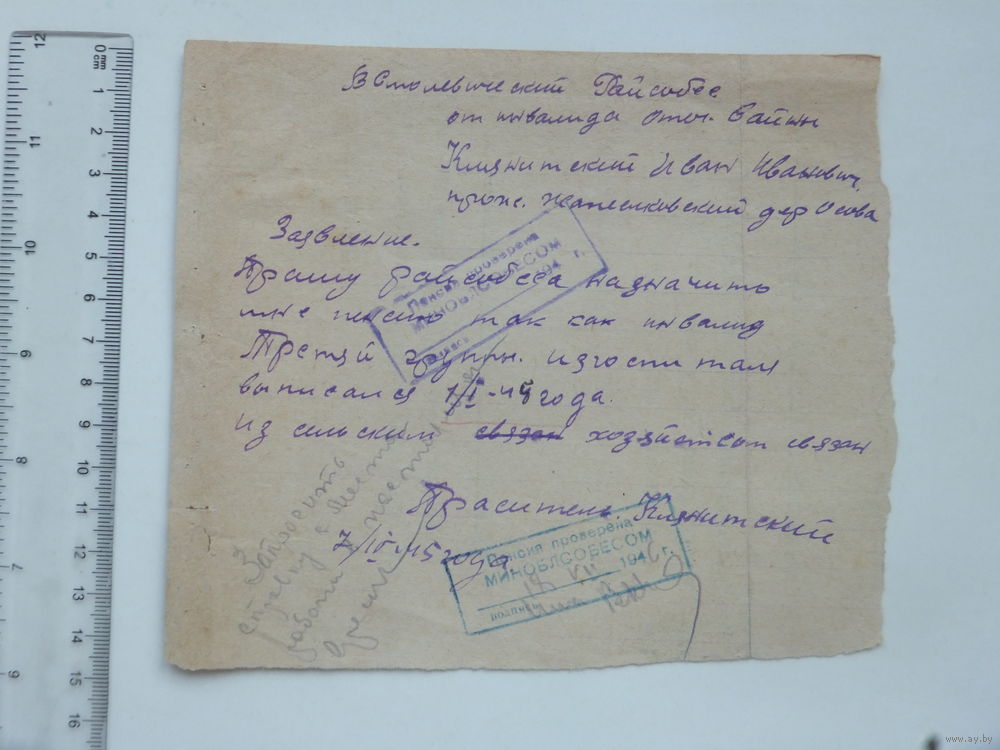 В Смолевический Райсобес
от нвалида отеч. Вайны
Клянитский Иван Иванович
прож. дер Осова
Заявление.
Прашу райсобесаназначить
мне пенсию так как нвалид
Третей групы. изгоспиталя
выписался 1/I-45 года.
из сельским связан хозяйством связан
Праситель. Клянитский
7/IV-45 года
Пенсия проверена
МИНОБЛСОБЕСОМ
194 г.
подпись
Пенсия проверена
МИНОБЛСОБЕСОМ
VII 1946 г.
подпись
Запросить
справку с места
работы
время
0 mm
cm
1
2
3
4
5
6
7
8
9
10
11
12
13
14
15
16
12
11
10
9
8
7
6
www.ay.by